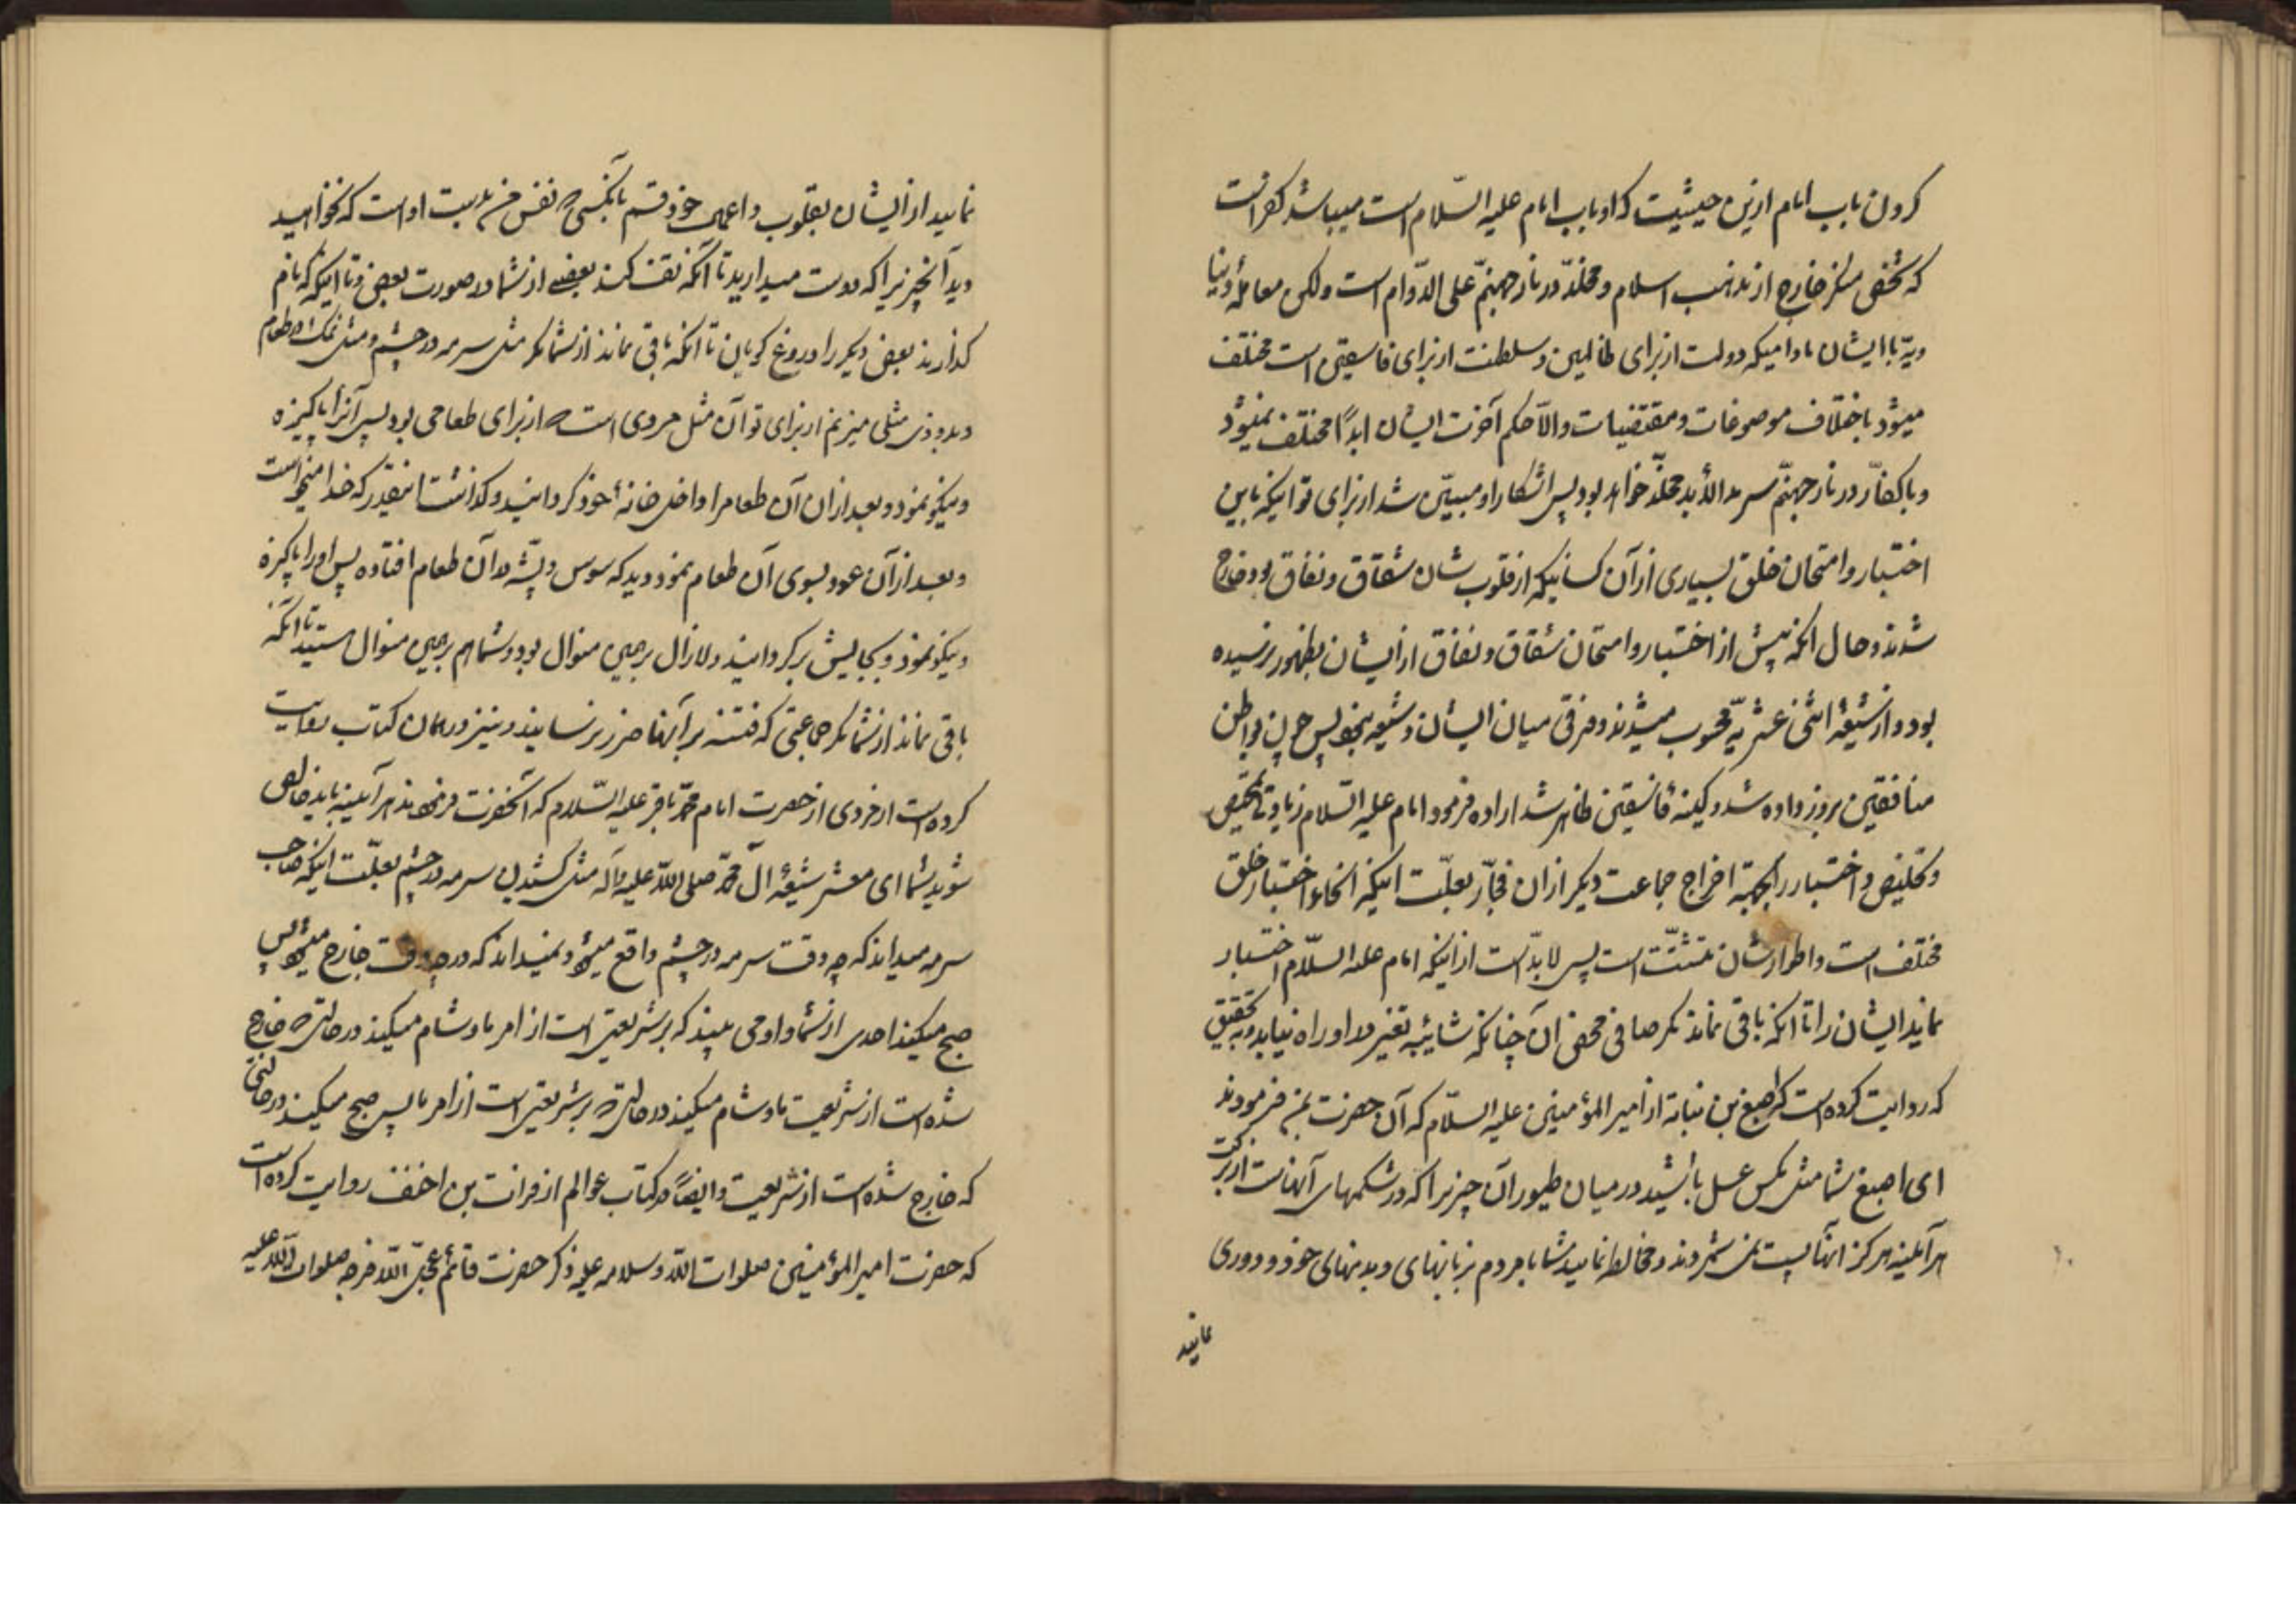 کردن باب امام ازین حیثیت که او باب امام علیه السّلام است میباشد کفر است
که شخص منکر خارج از مذهب اسلام و مخلّد در نار جهنّم علی الدّوام است ولکن معاملهٔ دنیا
ویّه با ایشان مادامیکه دولت از برای ظالمین و سلطنت از برای فاسقین است مختلف
میشود باختلاف موصوفات و مقتضیات والّا حکم آخرت ایشان ابداً مختلف نمیشود
و با کفّار در نار جهنّم سرمد الأبد مخلّد خواهد بود پس اشکارا و مبیّن شد از برای تو اینکه باین
اختبار و امتحان خلق بسیاری از آن کسانیکه در قلوب شان شقاق و نفاق بود خارج
شدند و حال آنکه پیش از اختبار و امتحان شقاق و نفاق از ایشان بظهور نرسیده
بود و از شیعهٔ اثنی عشریّه محسوب میشدند و فرقی میان ایشان و شیعه نبود پس چون بواطن
منافقین بروز داده شد و کینهٔ فاسقین ظاهر شد اراده فرمود امام علیه السّلام زیادتی تمحیص
و تخلیص و اختبار را بجهة اخراج جماعت دیگر از آن فجّار بعلّت اینکه انحاء اختبار خلق
مختلف است و اطوار شان متشتّت است پس لابدّ است از اینکه امام علیه السّلام اختبار
نماید ایشان را تا آنکه باقی نماند مگر صافی محض آن چنانکه شایبه تغیر در او راه نیابد و به تحقیق
که روایت کرده است اصبغ بن نباته از امیر المؤمنین علیه السّلام که آن حضرت بمن فرمودند
ای اصبغ شما مثل مگس عسل باشید در میان طیور آن چیزیرا که در شکمهای آنهاست از برکت
هر آینه هرگز آنها پست نمی شمردند و مخالطه نمائید شما با مردم بزبانهای و بدنهای خود و دوری
نمائید
نمائید از ایشان بقلوب و اعمال خود قسم بآنکسی که نفس من بدست اوست که نخواهید
دید آنچیزیرا که دوست میدارید تا آنکه تف کند بعضی از شما در صورت بعضی و تا اینکه نام
گذارید بعض دیگر را دروغ گویان تا آنکه باقی نماند از شما مگر مثل سرمه در چشم و مثل نمک در طعام
و بدو زنی مثلی میزنم از برای تو آن مثل مردی است که از برای طعامی بود پس آنرا پاکیزه
و نیکو نمود و بعد از آن آن طعام را داخل خانهٔ خود گردانید و گذاشت اینقدر که خدا میخواست
و بعد از آن عود بسوی آن طعام نمود دید که سوس و پشّه در آن طعام افتاده پس او را پاکیزه
و نیکو نمود و بجایش برگردانید و لازال برهمین منوال بود و شما هم برهمین منوال هستید تا آنکه
باقی نماند از شما مگر جماعتی که فتنه بر آنها ضرر نرسانید و نیز در همان کتاب روایت
کرده است از حضرت امام محمّد باقر علیه السّلام که آنحضرت فرمودند هر آینه باید خالص
شوید شما ای معشر شیعهٔ آل محمّد صلی اللّه علیه وآله مثل کشیدن سرمه در چشم بعلّت اینکه صاحب
سرمه میداند که چه وقت سرمه در چشم واقع میشود و نمیداند که در چه وقت خارج میشود پس
صبح میکند احدی از شما و او می بیند که بر شریعتی است از امر ما و شام میکند در حالتی که خارج
شده است از شریعت ما و شام میکند در حالتی که بر شریعتی است از امر ما پس صبح میکند در حالتی
که خارج شده است از شریعت و ایضاً در کتاب عوالم از فرات بن احنف روایت کرده است
که حضرت امیر المؤمنین صلوات اللّه وسلامه علیه ذکر حضرت قائم عجّل اللّه فرجه صلوات اللّه علیه